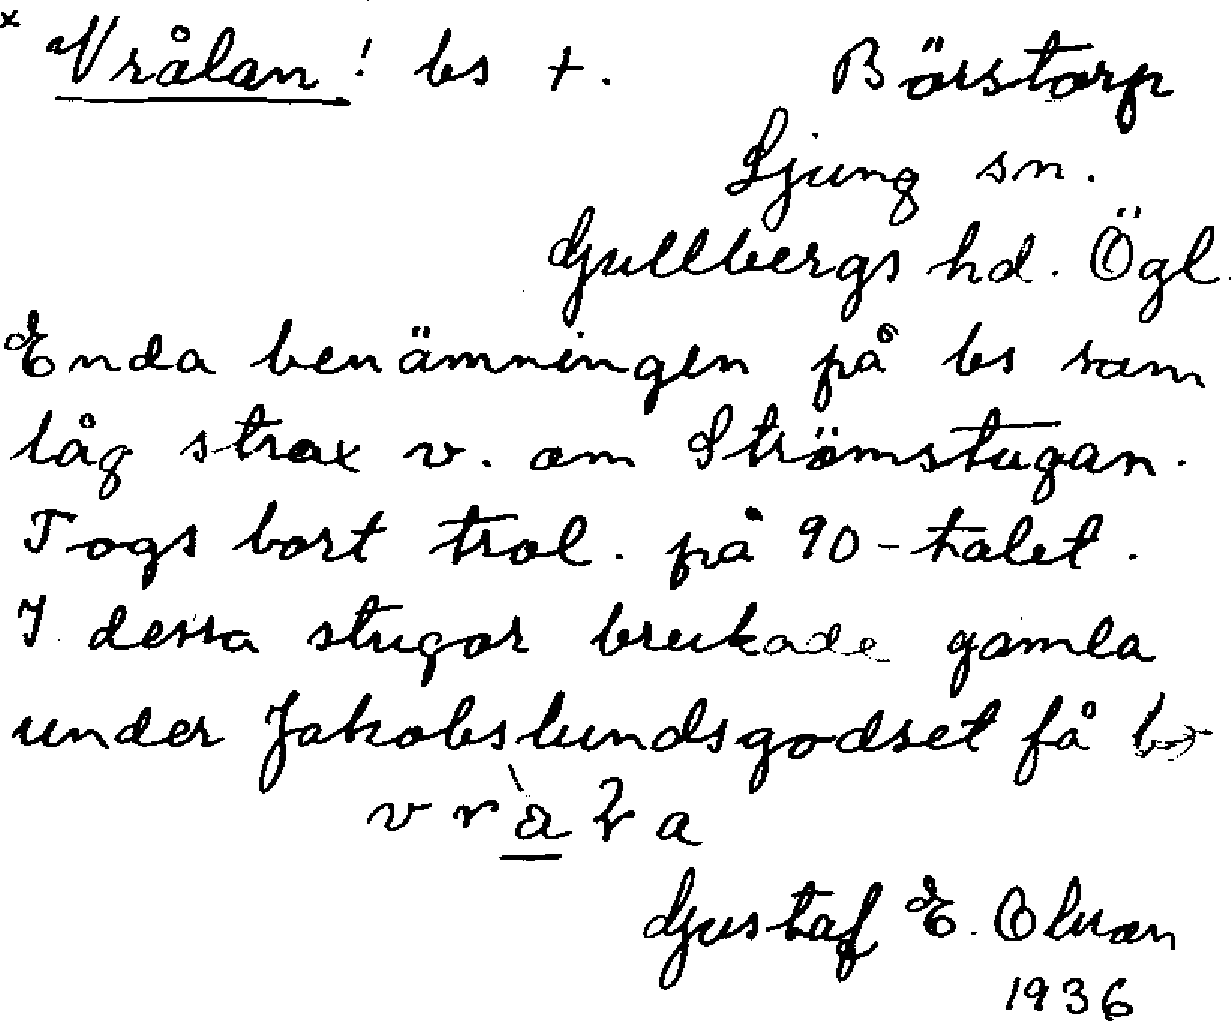 x Vrålan! bs +. Börstorp
Ljung sn.
Gullbergs hd. Ögl.
Enda benämningen på bs som
låg strax v. om Strömstugan.
Togs bort trol. på 90-talet.
I dessa stugor brukade gamla
under Jakobslundsgodset få bo
Gustaf E. Olsson
1936